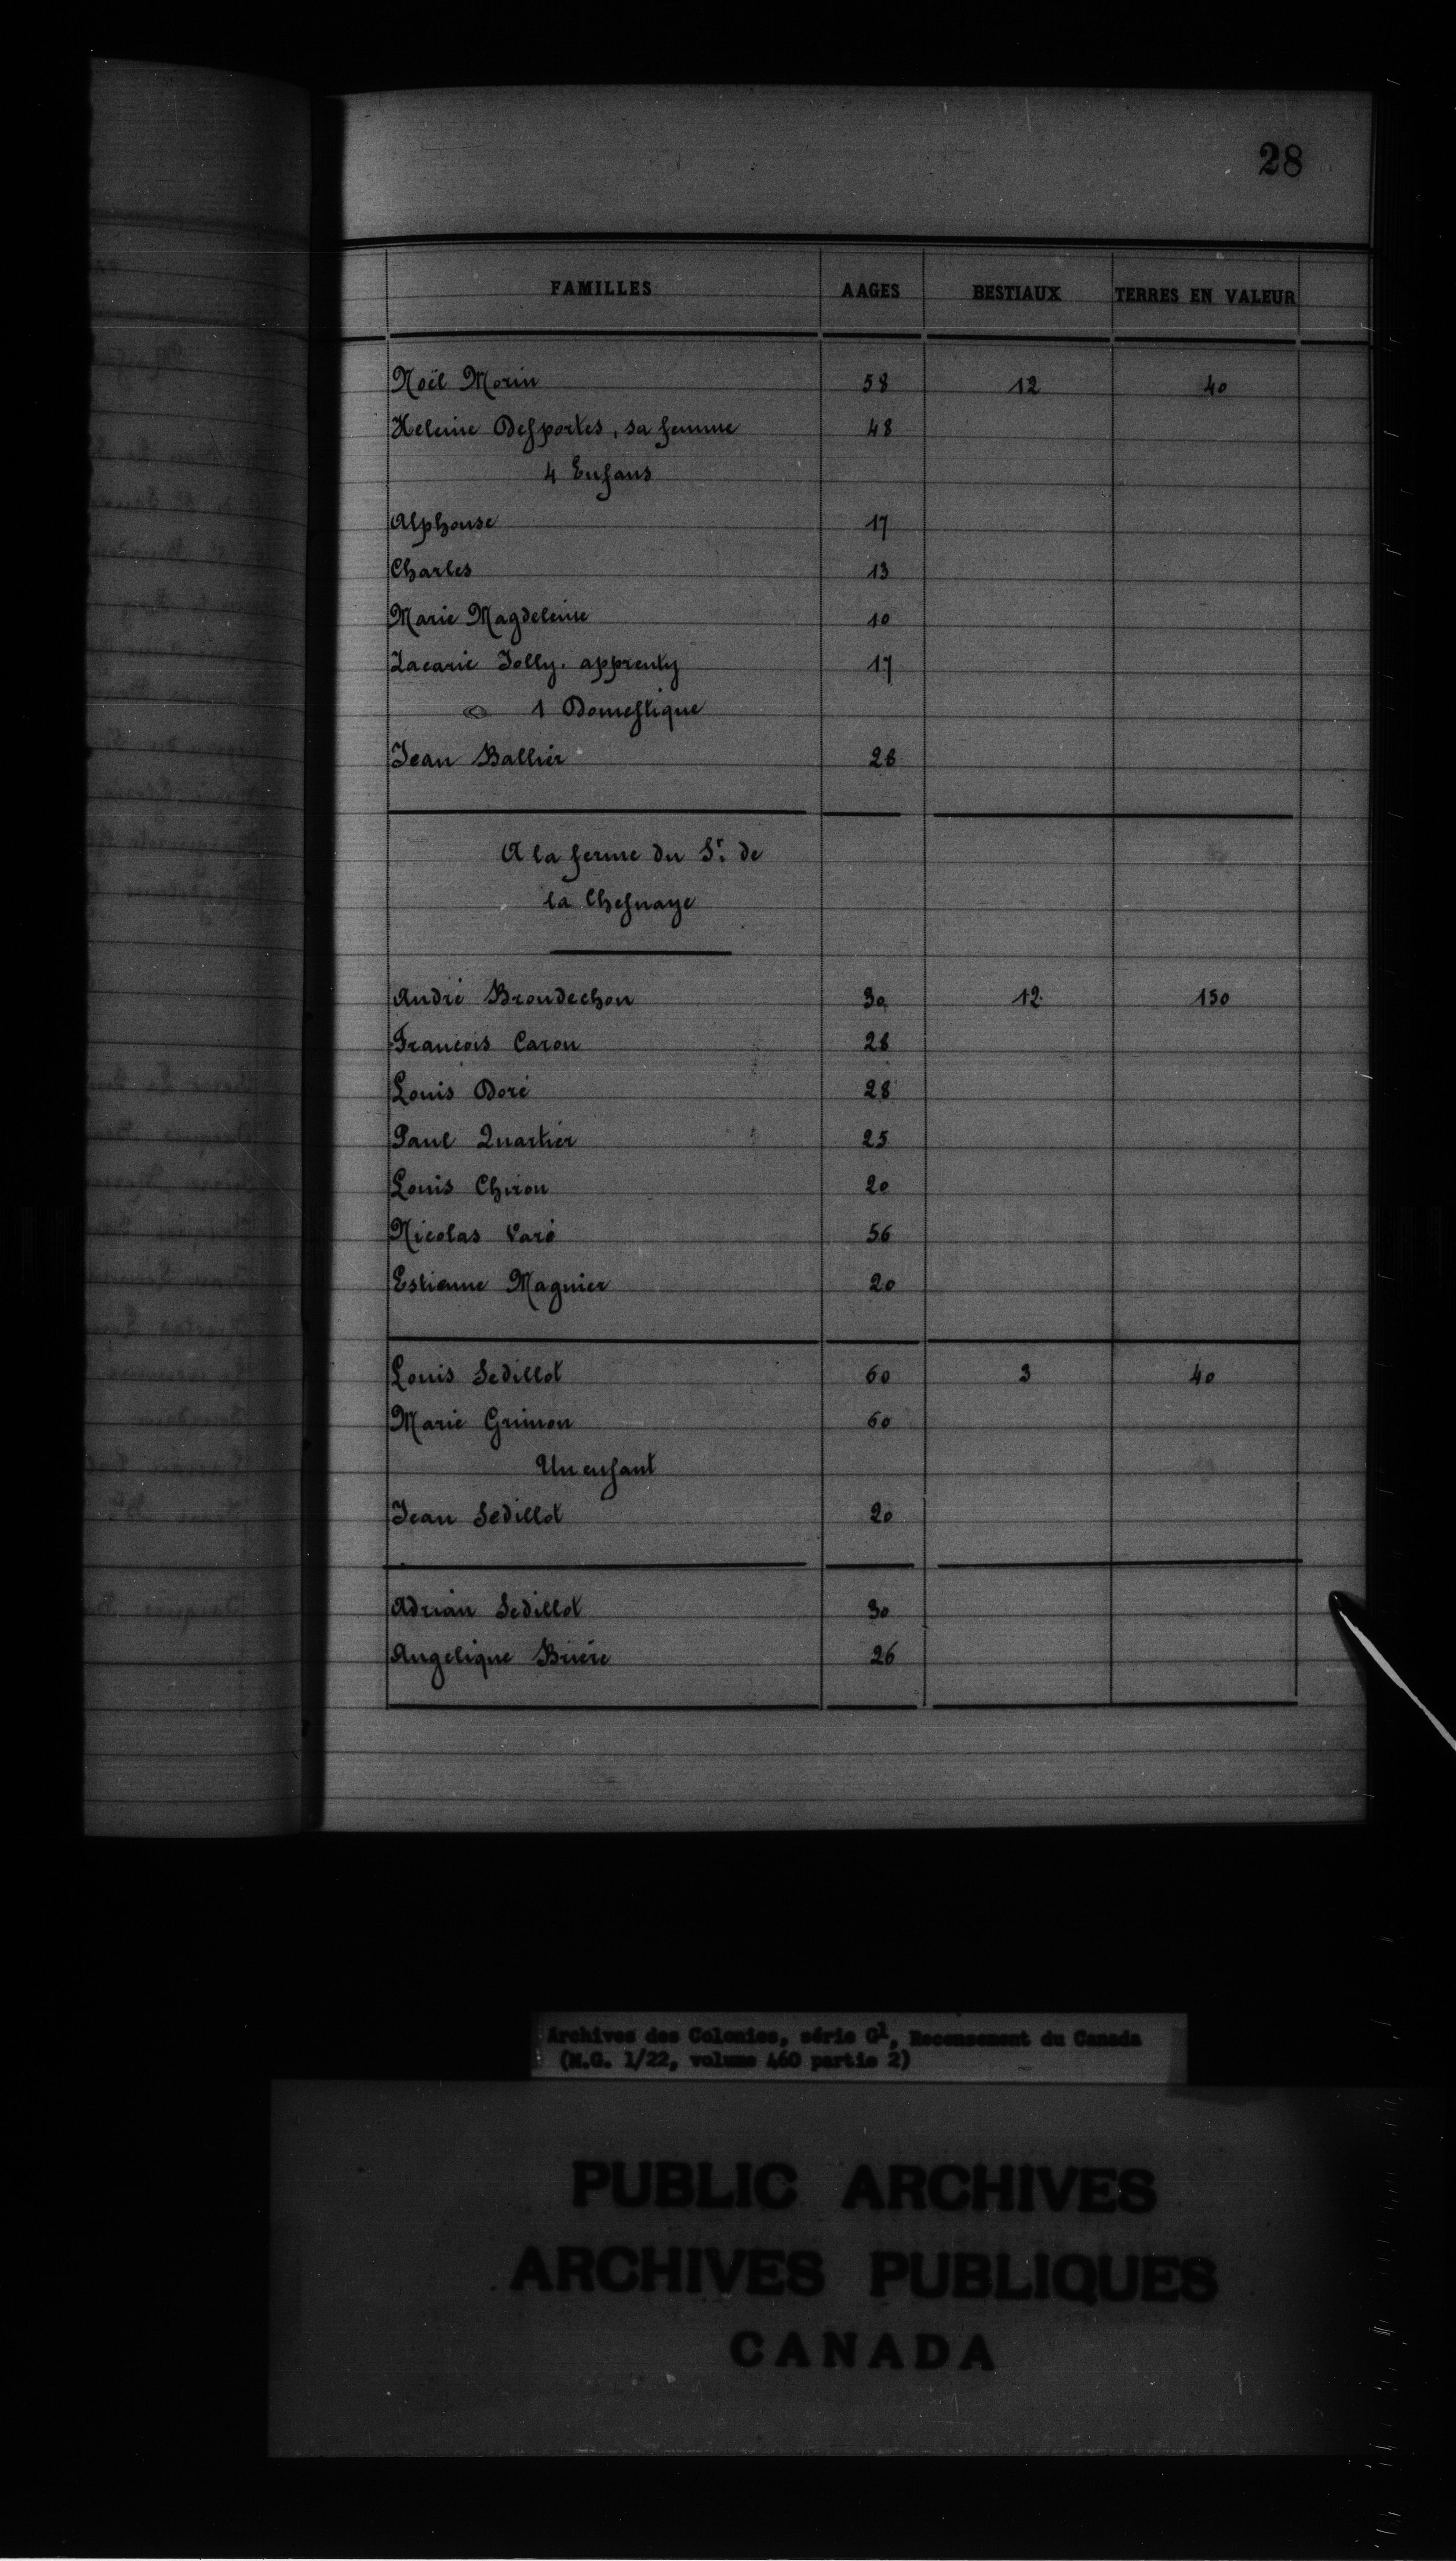 28
FAMILLES AAGES BESTIAUX TERRES EN VALEUR
Noël Morin 58 12 40
Heleine Desportes, sa femme 48
4 Enfans
Alphonse 17
Charles 13
Marie Magdeleine 10
Zacarie Jolly, apprenty 17
1 Domestique
Jean Ballier 28
A la ferme du Sr. de
la Chesnaye
André Brondechon 30 12 150
Francois Caron 28
Louis Doré 28
Paul Quartier 25
Louis Chiron 20
Nicolas Varé 56
Estienne Magnier 20
Louis Sedillot 60 3 40
Marie Grimon 60
Un enfant
Jean Sedillot 20
Adrian Sedillot 30
Angelique Briere 26
Archives des Colonies, série G1, Recensement du Canada
(M.G. 1/22, volume 460 partie 2)
PUBLIC ARCHIVES
ARCHIVES PUBLIQUES
CANADA